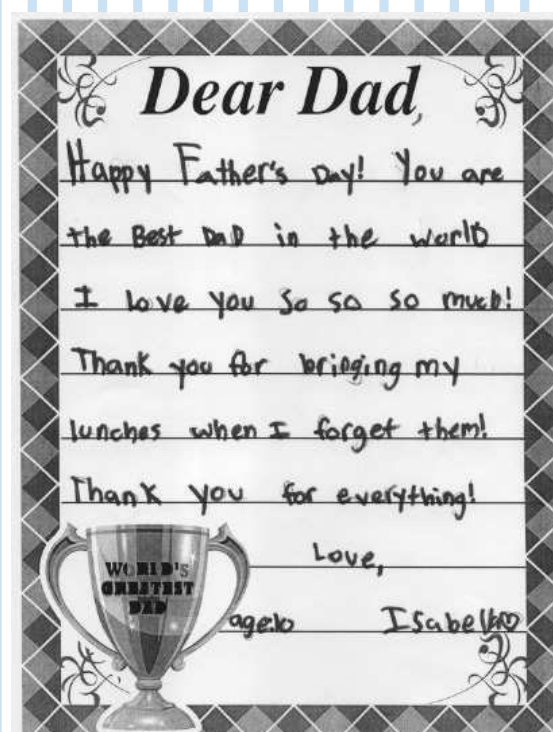 Dear Dad,
Happy Father's Day! You are
the Best DaD in the worlD
I love you so so so much!
Thank you for bringing my
lunches when I forget them!
Thank you for everything!
Love,
WORLD'S
GREATEST
DAD
age:10 Isabella♡